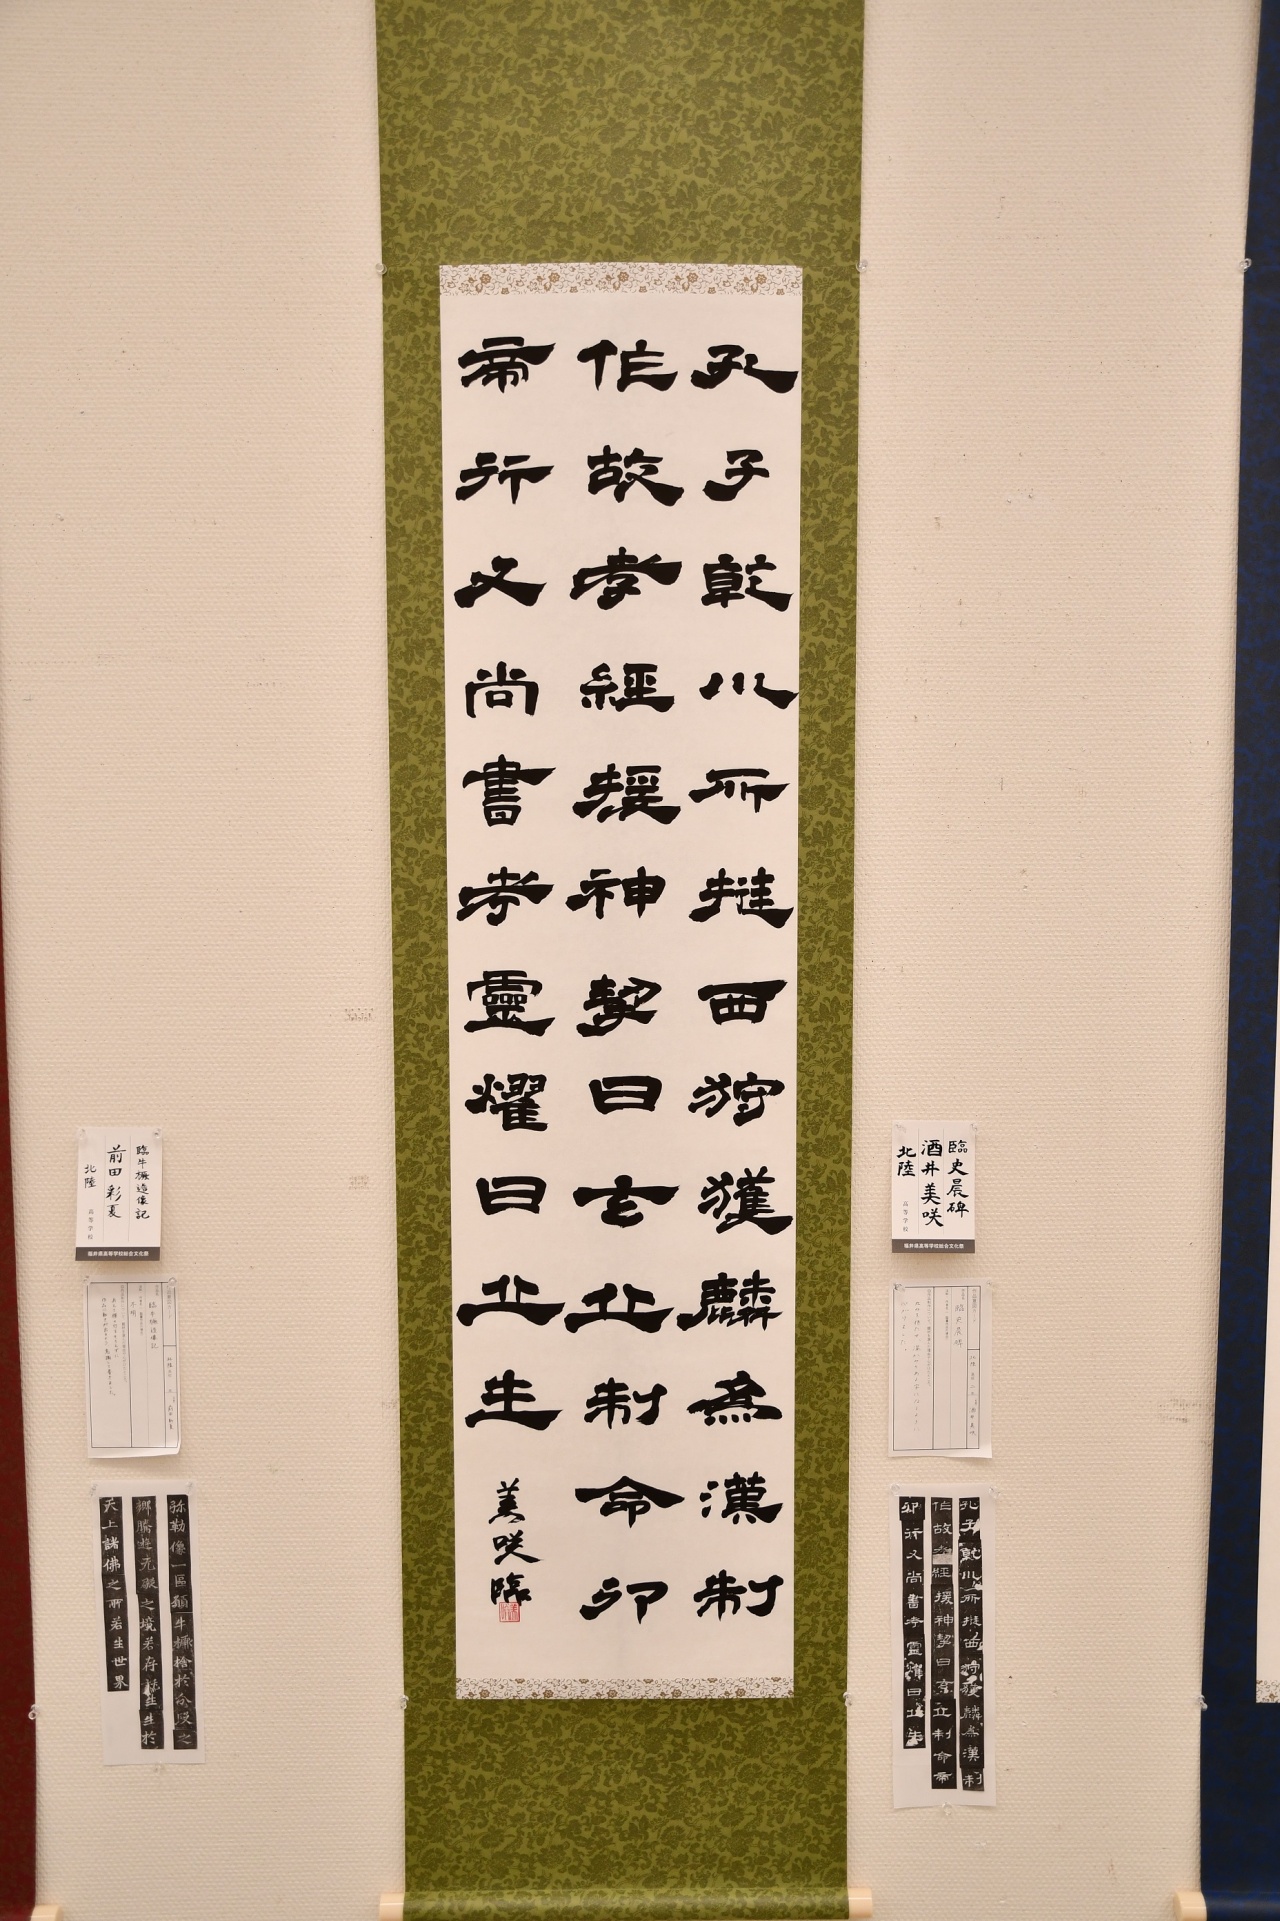 孔子乾川所挻西狩獲麟為漢制
作故孝經援神挈曰玄丘制命卯
帝行又尚書考靈燿曰丘生
美咲臨
臨史晨碑
酒井美咲
北陸
高等学校
福井県高等学校総合文化祭
臨史晨碑
孔子乾川所挻西狩獲麟為漢制
作故孝經援神挈曰玄丘制命帝
卯行又尚書考靈燿曰丘生
臨牛橛造像記
前田彩夏
北陸
高等学校
福井県高等学校総合文化祭
臨牛橛造像記
弥勒像一區願牛橛捨於分段之
鄉騰遊无礙之境若存託生生於
天上諸佛之所若生世界